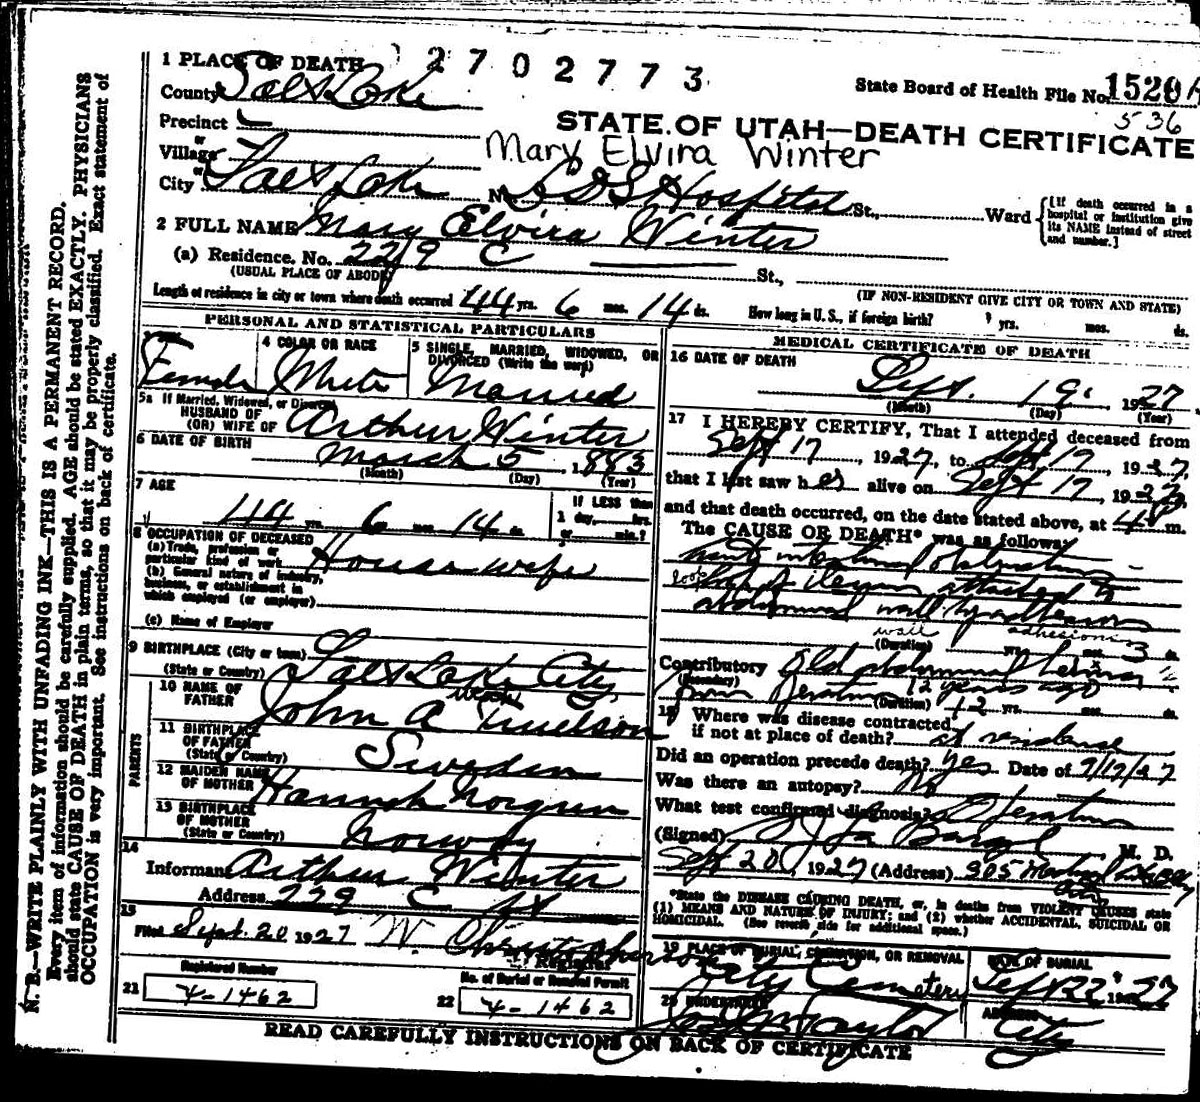 N. B.—WRITE PLAINLY WITH UNFADING INK—THIS IS A PERMANENT RECORD.
Every item of information should be carefully supplied. AGE should be stated EXACTLY. PHYSICIANS
should state CAUSE OF DEATH in plain terms, so that it may be properly classified. Exact statement of
OCCUPATION is very important. See instructions on back of certificate.
2702773
State Board of Health File No. 1520 A
536
STATE OF UTAH—DEATH CERTIFICATE
Mary Elvira Winter
1 PLACE OF DEATH
County Salt Lake
Precinct
or
Village
or
City Salt Lake No. LDS Hospital St., Ward
[If death occurred in a
hospital or institution give
its NAME instead of street
and number.]
2 FULL NAME Mary Elvira Winter
(a) Residence. No. 229 C St.,
(USUAL PLACE OF ABODE)
(IF NON-RESIDENT GIVE CITY OR TOWN AND STATE)
Length of residence in city or town where death occurred 44 yrs. 6 mos. 14 ds. How long in U. S., if foreign birth? yrs. mos. ds.
PERSONAL AND STATISTICAL PARTICULARS
Female
4 COLOR OR RACE
White
5 SINGLE, MARRIED, WIDOWED, OR
DIVORCED (Write the word)
Married
5a If Married, Widowed, or Divorced
HUSBAND OF
(OR) WIFE OF Arthur Winter
6 DATE OF BIRTH March 5 1883
(Month) (Day) (Year)
7 AGE
44 yrs. 6 mos. 14 ds.
If LESS than
1 day, hrs.
or min.?
8 OCCUPATION OF DECEASED
(a) Trade, profession or
particular kind of work Housewife
(b) General nature of industry,
business, or establishment in
which employed (or employer)
(c) Name of Employer
9 BIRTHPLACE (City or town)
(State or Country) Salt Lake City
PARENTS
10 NAME OF
FATHER John A
11 BIRTHPLACE
OF FATHER
(State or Country) Sweden
12 MAIDEN NAME
OF MOTHER Hannah Norgren
13 BIRTHPLACE
OF MOTHER
(State or Country) Norway
14
Informant Arthur Winter
Address 229 C St
15
Filed Sept. 20 1927 W. Christopherson
Registrar
Registered Number
21 4-1462
No. of Burial or Removal Permit
22 4-1462
MEDICAL CERTIFICATE OF DEATH
16 DATE OF DEATH
Sept. 19 1927
(Month) (Day) (Year)
17 I HEREBY CERTIFY, That I attended deceased from
Sept 17, 1927, to Sept 19, 1927,
that I last saw her alive on Sept 19, 1927,
and that death occurred, on the date stated above, at m.
The CAUSE OR DEATH* was as follows:
intestinal obstruction
loop of ileum attached to
abdominal wall by adhesions
wall adhesions
(Duration) yrs. mos. 3 ds.
Contributory Old abdominal hernia
(Secondary) from operation 12 years ago
(Duration) 12 yrs. mos. ds.
18 Where was disease contracted
if not at place of death? at residence
Did an operation precede death? Yes Date of 9/17/27
Was there an autopsy? No
What test confirmed diagnosis? Operation
(Signed) M. D.
Sept 20, 1927 (Address) 905
*State the DISEASE CAUSING DEATH, or, in deaths from VIOLENT CAUSES state
(1) MEANS AND NATURE OF INJURY; and (2) whether ACCIDENTAL, SUICIDAL OR
HOMICIDAL. (See reverse side for additional space.)
19 PLACE OF BURIAL, CREMATION, OR REMOVAL
City Cemetery
DATE OF BURIAL
Sept 22 1927
20 UNDERTAKER
Taylor
ADDRESS
City
READ CAREFULLY INSTRUCTIONS ON BACK OF CERTIFICATE